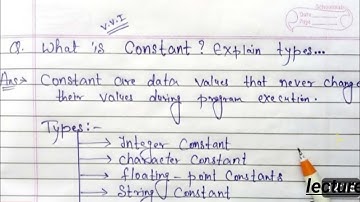 V.V.I
Q. What is Constant? Explain types...
Ans:→ Constant are data values that never change
their values during program execution.
Types:-
→ Integer Constant
→ character Constant
→ floating-point Constants
→ String Constant
lecture